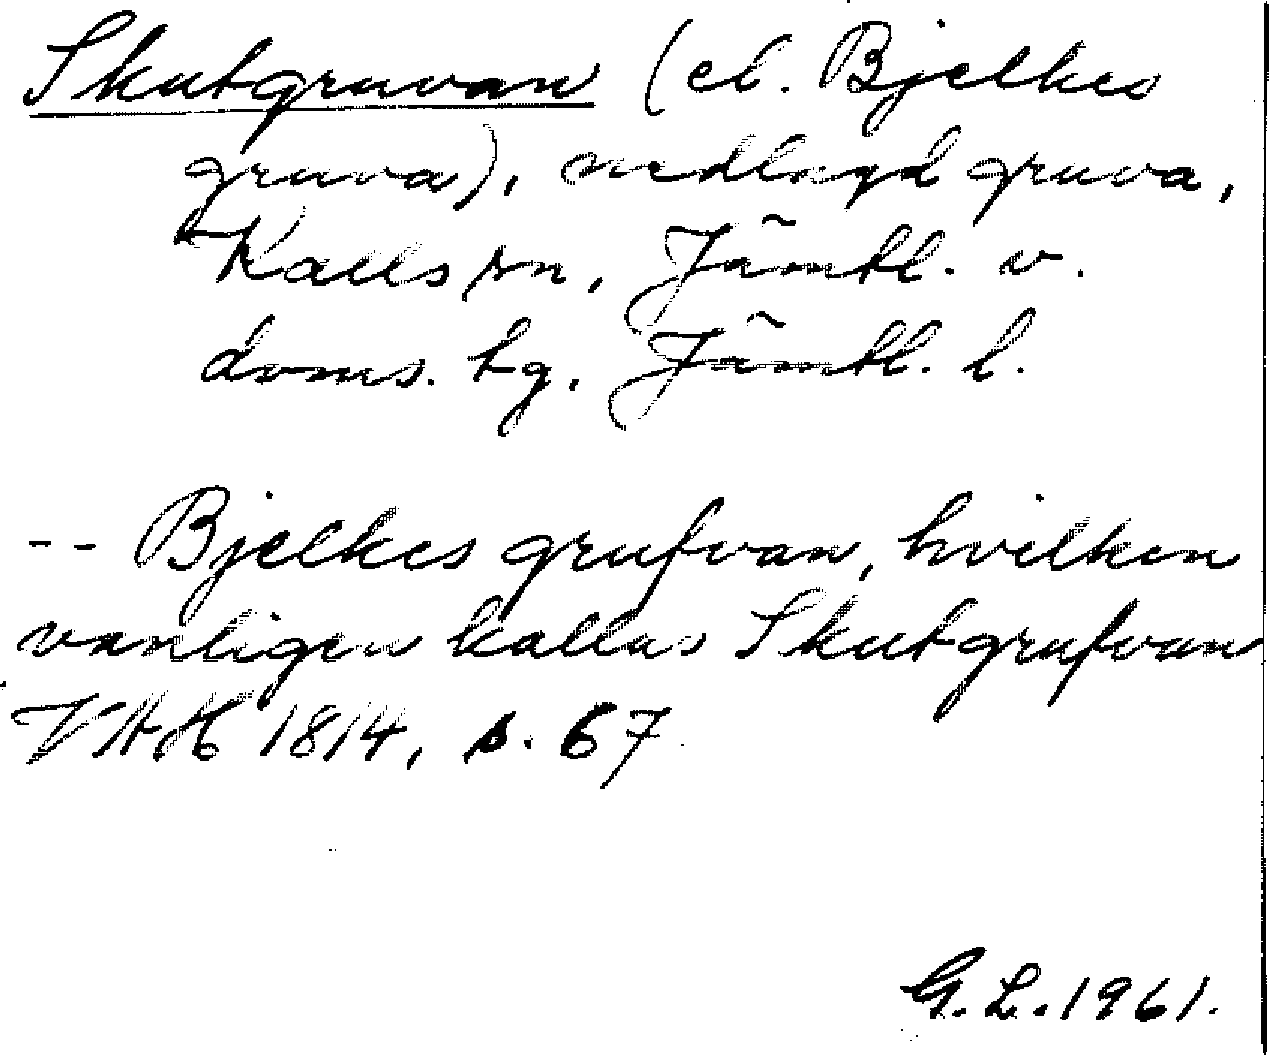 Skutgruvan (el. Bjelkes
gruva), nedlagd gruva,
Kalls sn, Jämtl. v.
doms. tg, Jämtl. l.
-- Bjelkes grufvan, hvilken
vanligen kallas Skutgrufvan
VAH 1814, s. 67
G. L. 1961.